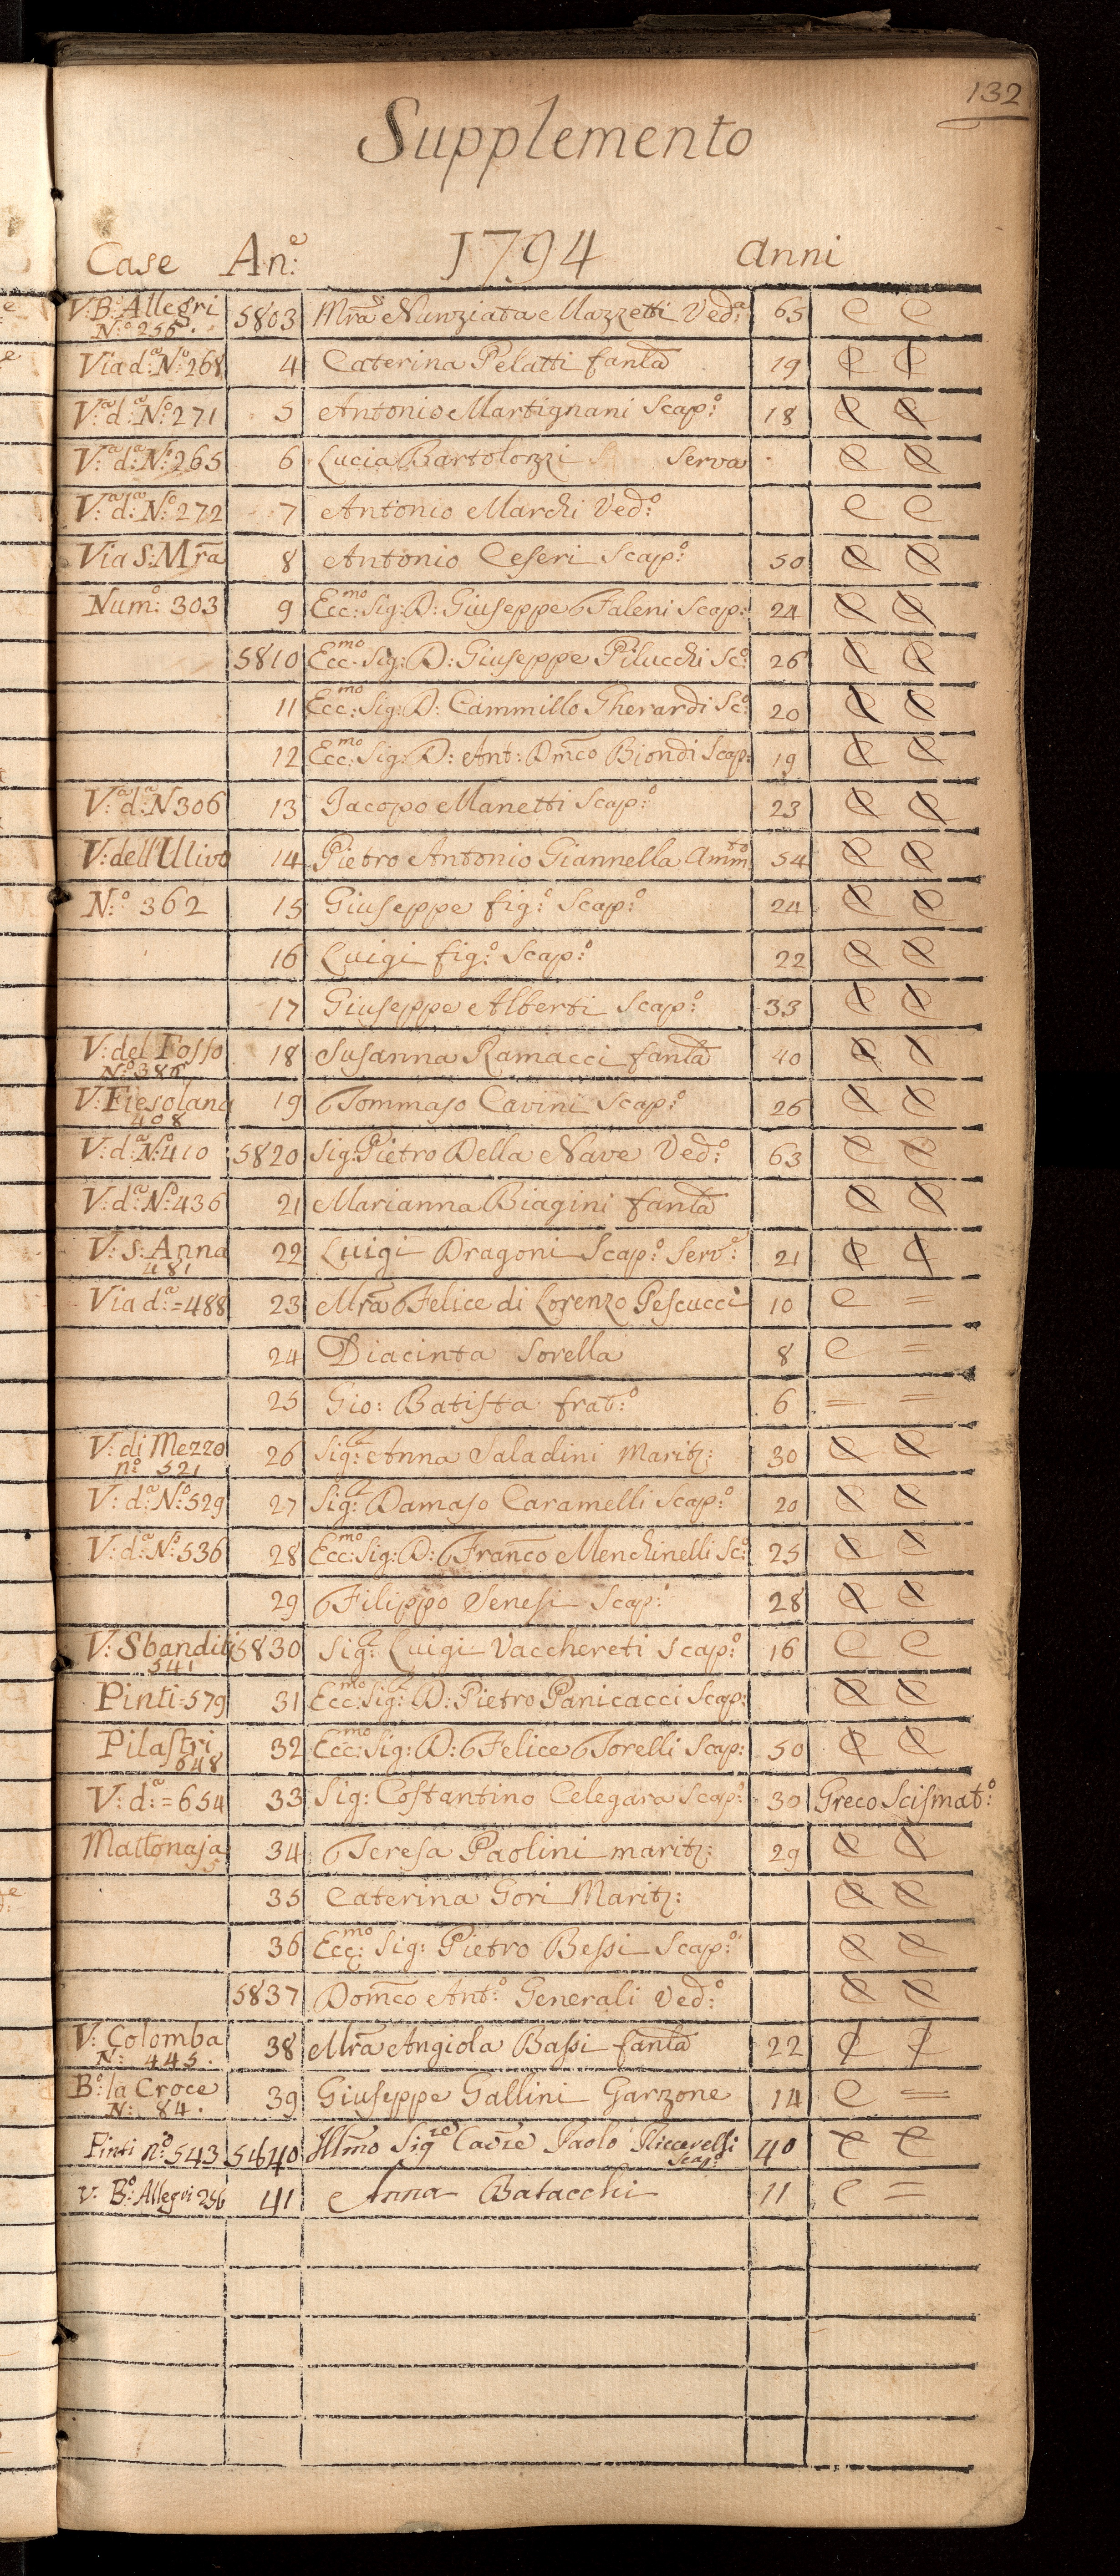 132
Supplemento
Case An:e 1794 anni
V: B:o Allegri 5803 Mra Nunziata Mazzetti Ved:a 65 C C
N:o 256.
Via d:a N:o 268 4 Caterina Pelatti fanla 19 C C
V:a d:a N:o 271 5 Antonio Martignani Scap:o 18 C C
V:a d:a N:o 265 6 Lucia Bartolozzi Serva C C
V:a d:a N:o 272 7 Antonio Marchi Ved:o C C
Via S: Mra 8 Antonio Ceseri Scap:o 50 C C
Num:o 303 9 Ecc:mo Sig: D: Giuseppe Faleni Scap: 24 C C
5810 Ecc:mo Sig: D: Giuseppe Pilucchi Sc:o 26 C C
11 Ecc:mo Sig: D: Cammillo Gherardi Sc:o 20 C C
12 Ecc:mo Sig: D: Ant: Dmco Biondi Scap: 19 C C
V:a d:a N 306 13 Jacopo Manetti Scap:o 23 C C
V: dell'Ulivo 14 Pietro Antonio Giannella Amm:to 54 C C
N:o 362 15 Giuseppe fig:o Scap:o 24 C C
16 Luigi fig:o Scap:o 22 C C
17 Giuseppe Alberti Scap:o 33 C C
V: del Fosso 18 Susanna Ramacci fanla 40 C C
N:o 386
V: Fiesolana 19 Tommaso Cavini Scap:o 26 C C
408
V: d:a N:o 410 5820 Sig: Pietro Della Nave Ved:o 63 C C
V: d:a N:o 436 21 Marianna Biagini fanla C C
V: S: Anna 22 Luigi Dragoni Scap:o Serv:e 21 C C
481
Via d:a = 488 23 Mra Felice di Lorenzo Pescucci 10 C =
24 Diacinta Sorella 8 C =
25 Gio: Batista frat:o 6 = =
V: di Mezzo 26 Sig:a Anna Saladini Marit: 30 C C
n:o 521
V: d:a N:o 529 27 Sig: Damaso Caramelli Scap:o 20 C C
V: d:a N:o 536 28 Ecc:mo Sig: D: Franco Menchinelli Sc:o 25 C C
29 Filippo Senesi Scap:o 28 C C
V: Sbanditi 5830 Sig: Luigi Vacchereti Scap:o 16 C C
541
Pinti = 579 31 Ecc:mo Sig: D: Pietro Panicacci Scap: C C
Pilastri 32 Ecc:mo Sig: D: Felice Torelli Scap: 50 C C
648
V: d:a = 654 33 Sig: Costantino Celegara Scap:o 30 Greco Scismat:o
Mattonaja 34 Teresa Paolini marit: 29 C C
35 Caterina Gori Marit: C C
36 Ecc:mo Sig: Pietro Bessi Scap:o C C
5837 Domco Ant:o Generali Ved:o C C
V: Colomba 38 Mra Angiola Bassi fanla 22 C C
N: 445.
B:o la Croce 39 Giuseppe Gallini Garzone 14 C =
N: 84.
Pinti n:o 543 5840 Illmo Sigre Cavre Paolo 40 C C
Scap:o
V: B:o Allegri 256 41 Anna Batacchi 11 C =